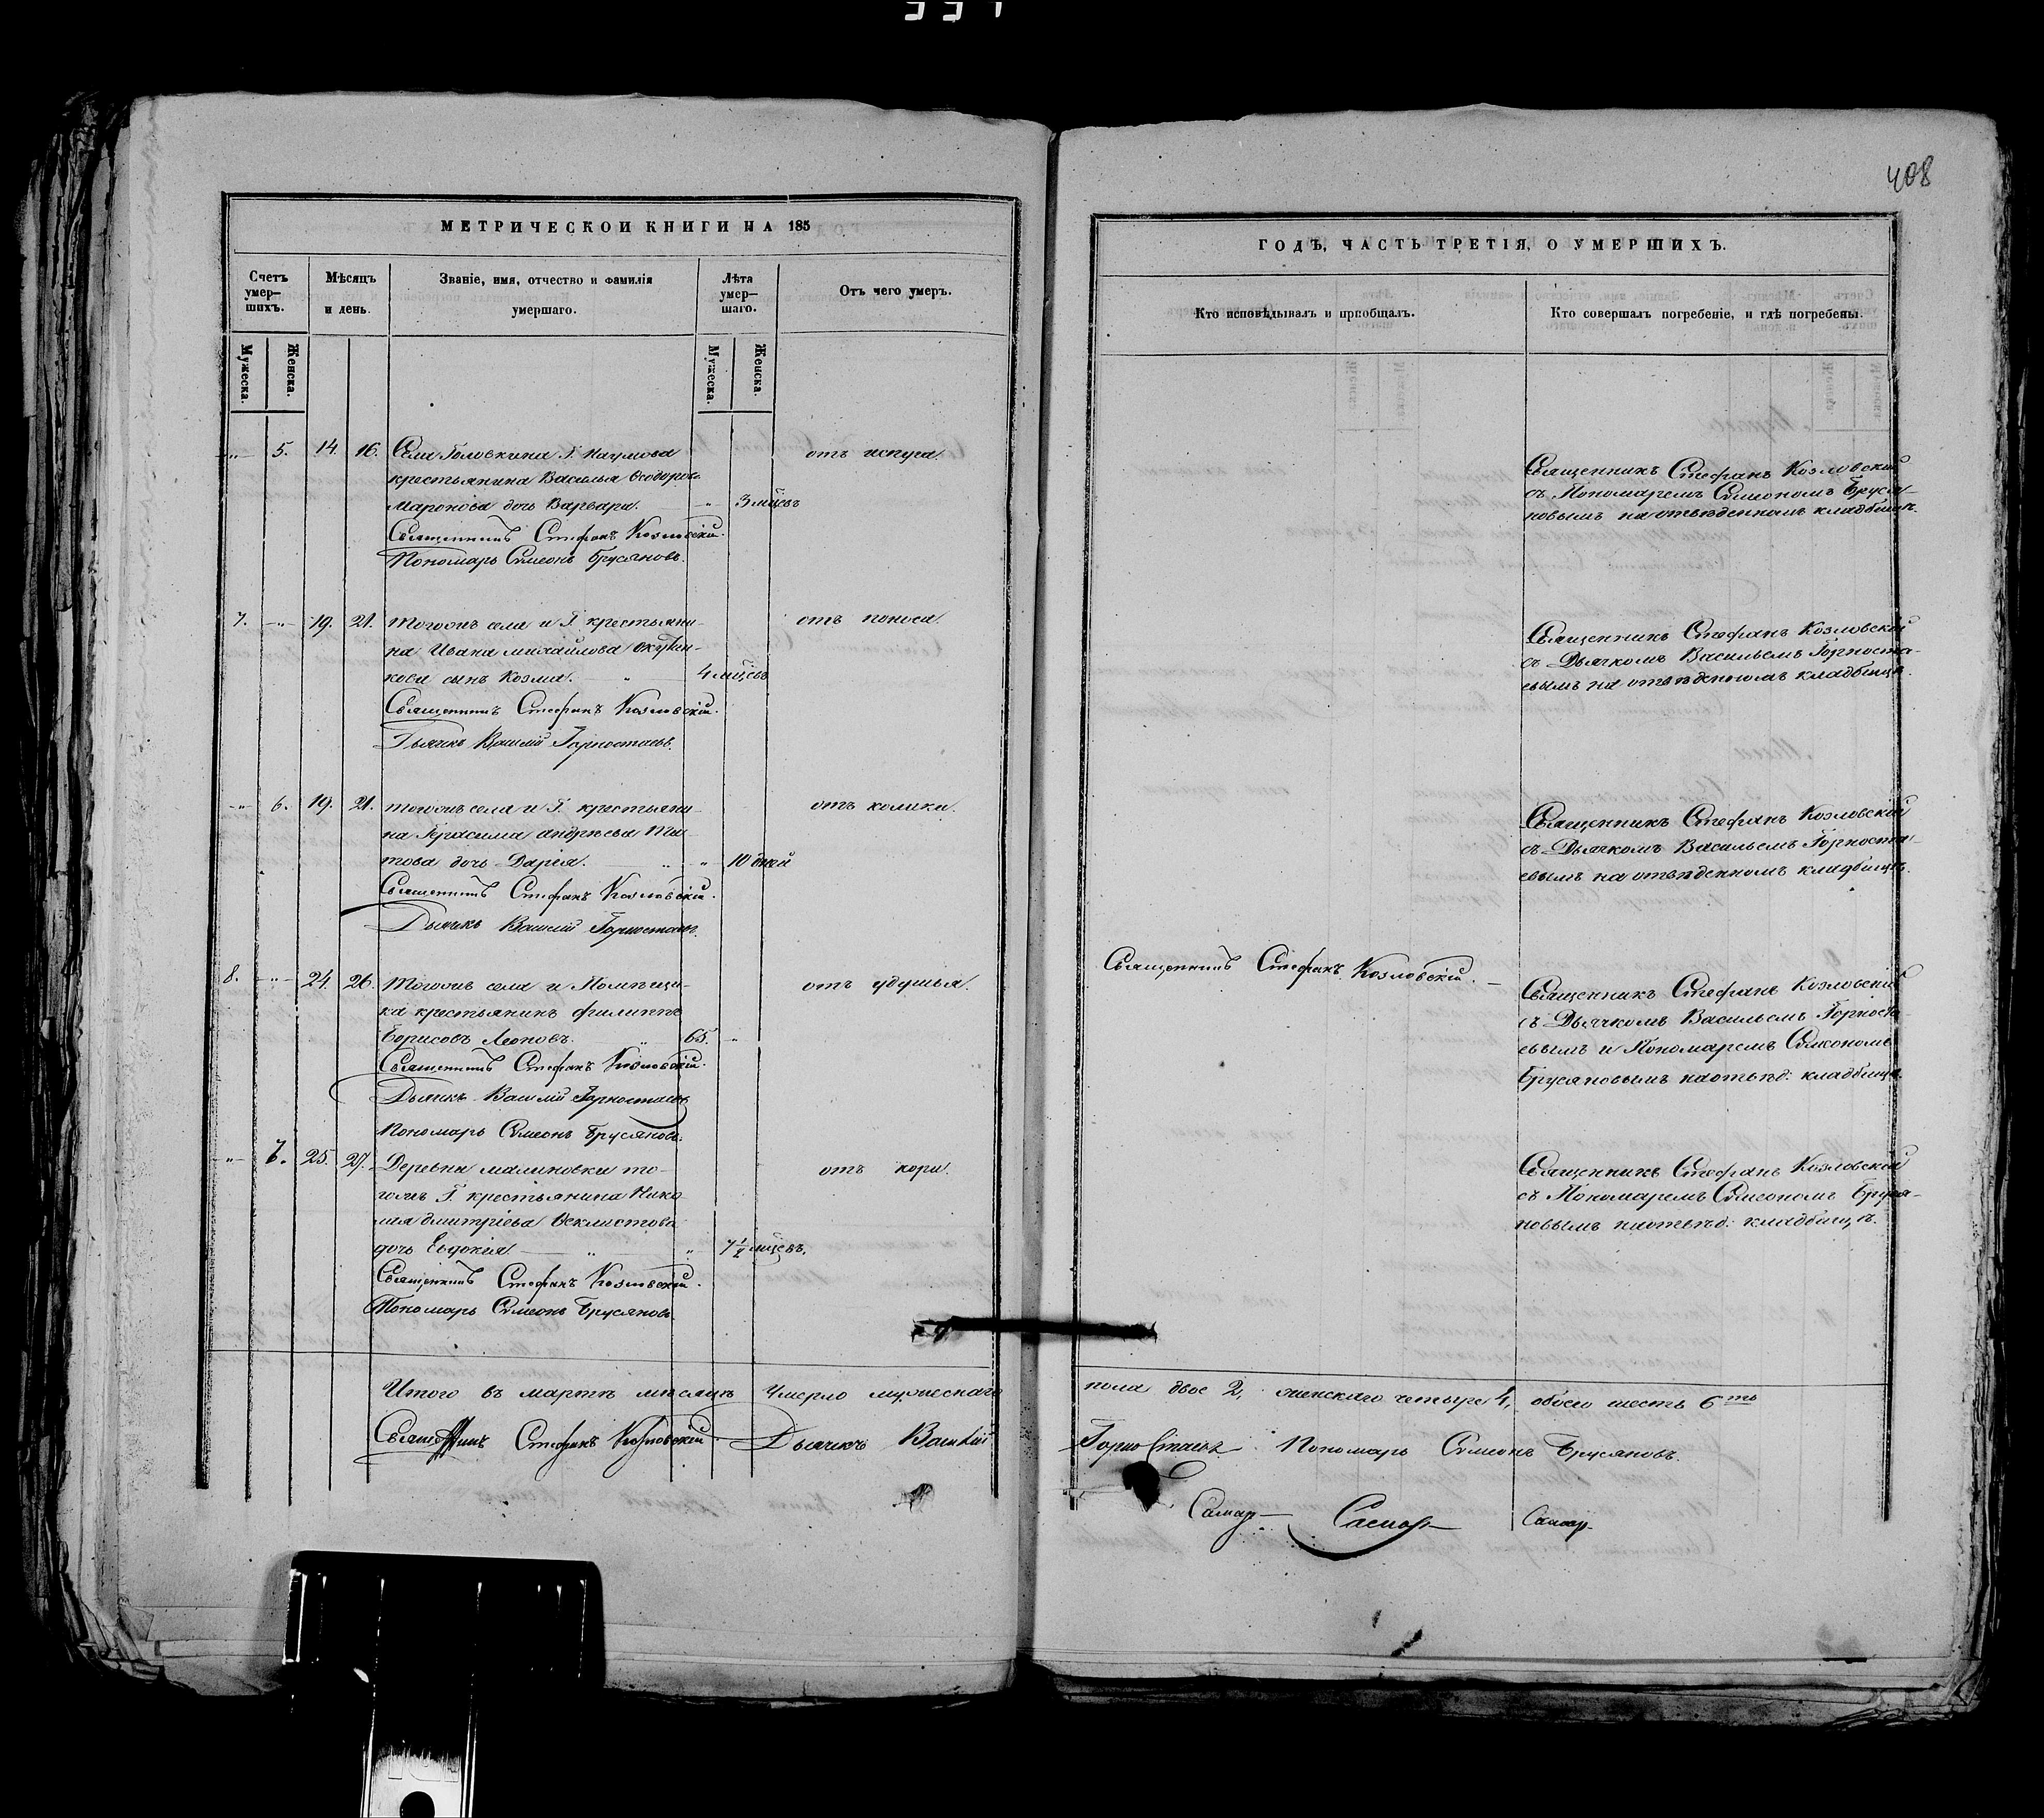 408
МЕТРИЧЕСКОЙ КНИГИ НА 185
Счетъ умер-шихъ.
Мѣсяцъ и день.
Званіе, имя, отчество и фамилія умершаго.
Лѣта умер-шаго.
Отъ чего умеръ.
Мужеска. Женска.
Мужеска. Женска.
5. 14. 16. Села Головкина Г. Наумова
крестьянина Василья Ѳеодорова
Маронова дочь Варвара. 3 мѣсцъ
отъ испуга.
Священникъ Стефанъ Козловскій.
Пономарь Сѵмеонъ Брусяновъ.
7. 19. 21. Тогожъ села и Г. крестьяни-
на Ивана Михайлова
кова сынъ Козма. 4 мѣсцъ
отъ поноса.
Священникъ Стефанъ Козловскій.
Дьячекъ Василій Горностаевъ.
6. 19. 21. Тогожъ села и Г. крестьяни-
на Герасима Андреева Ти-
това дочь Дарія. 10 дней
отъ колики.
Священникъ Стефанъ Козловскій.
Дьячекъ Василій Горностаевъ.
8. 24. 26. Тогожъ села и Помѣщи-
ка крестьянинъ Филиппъ
Борисовъ Леоновъ. 65.
отъ удушья.
Священникъ Стефанъ Козловскій.
Дьячекъ Василій Горностаевъ
Пономарь Сѵмеонъ Брусяновъ.
25. 27. Деревни Малиновки то-
гожъ Г. крестьянина Нико-
лая Дмитріева Ѳеклистова
дочь Евдокія. 7 1/2 мѣсцъ.
отъ кори.
Священникъ Стефанъ Козловскій.
Пономарь Сѵмеонъ Брусяновъ
Итого въ мартѣ мѣсяцѣ умерло мужескаго
Священникъ Стефанъ Козловскій Дьячекъ Василій
ГОДЪ, ЧАСТЬ ТРЕТІЯ, О УМЕРШИХЪ.
Кто исповѣдывалъ и пріобщалъ.
Кто совершалъ погребеніе, и гдѣ погребены.
Священникъ Стефанъ Козловскій
съ Пономаремъ Сѵмеономъ Бруся-
новымъ на отведенномъ кладбищѣ.
Священникъ Стефанъ Козловскій
съ Дьячкомъ Васильемъ Горноста-
евымъ на отведенномъ кладбищѣ.
Священникъ Стефанъ Козловскій
съ Дьячкомъ Васильемъ Горноста-
евымъ на отведенномъ кладбищѣ.
Священникъ Стефанъ Козловскій.
Священникъ Стефанъ Козловскій
съ Дьячкомъ Васильемъ Горноста-
евымъ и Пономаремъ Сѵмеономъ
Брусяновымъ на отвед. кладбищѣ.
Священникъ Стефанъ Козловскій
съ Пономаремъ Сѵмеономъ Бруся-
новымъ на отвед. кладбищѣ.
пола двое 2, женскаго четыре 4, обоего шесть 6ть
Горностаевъ Пономарь Сѵмеонъ Брусяновъ.